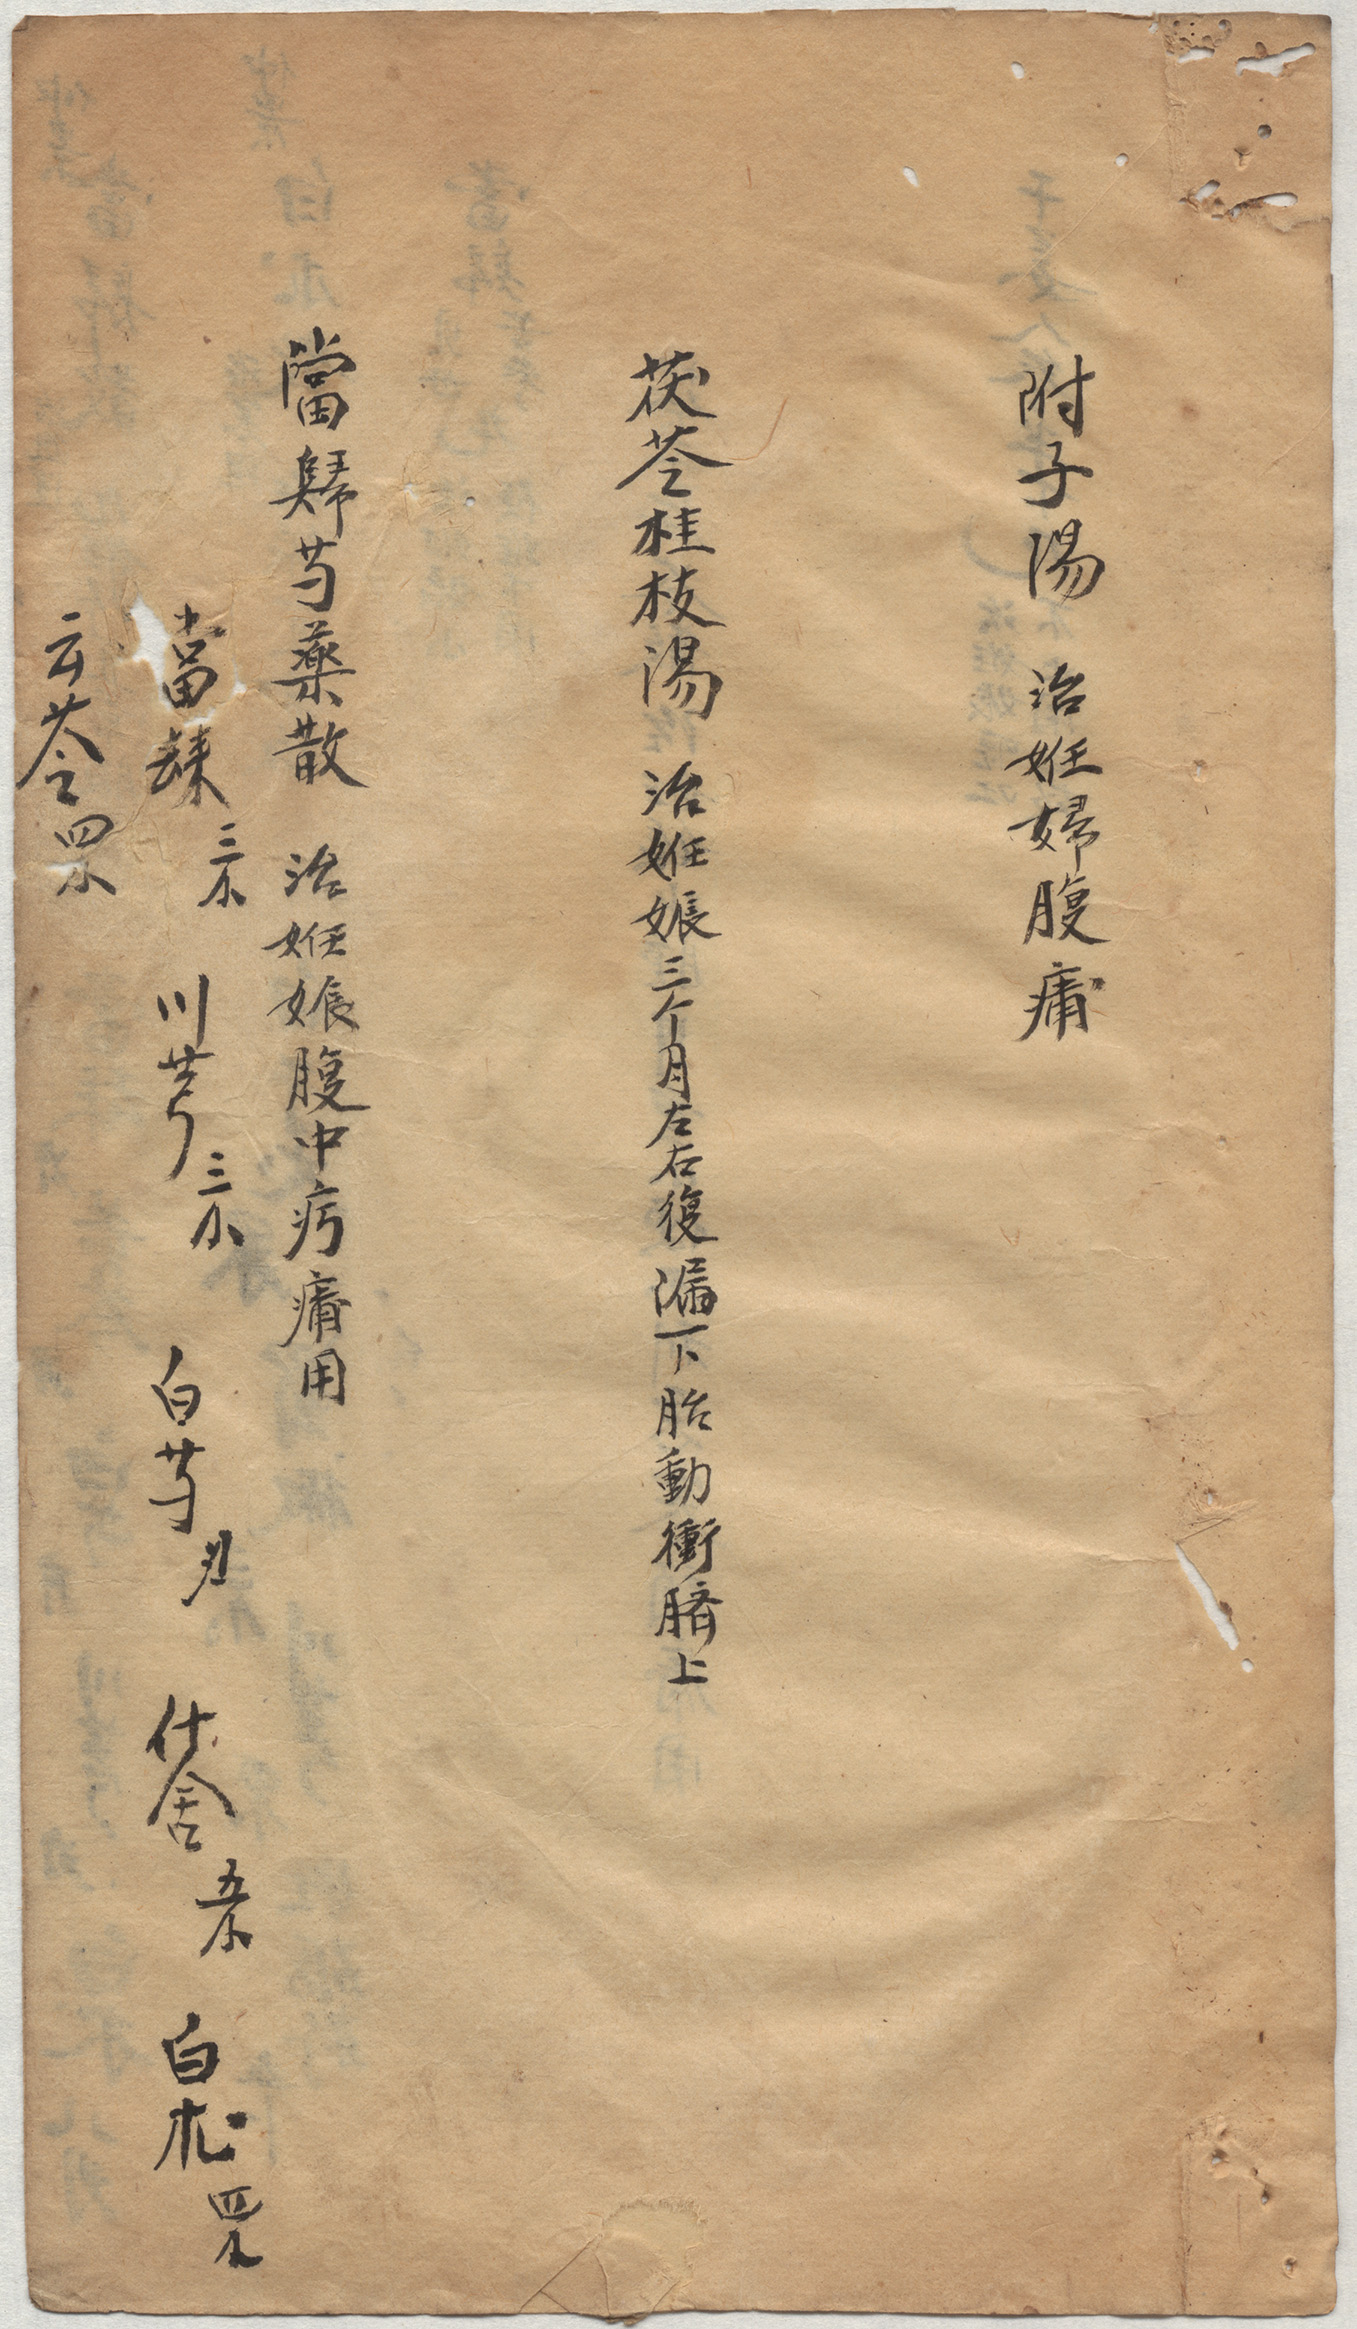 附子湯 治姙婦腹痛
茯苓桂枝湯 治姙娠三个月左右復漏下胎動衝臍上
當歸芍藥散 治姙娠腹中疞痛用
當歸 三朩 川芎 三朩 白芍 白朮 四朩
云苓 四朩